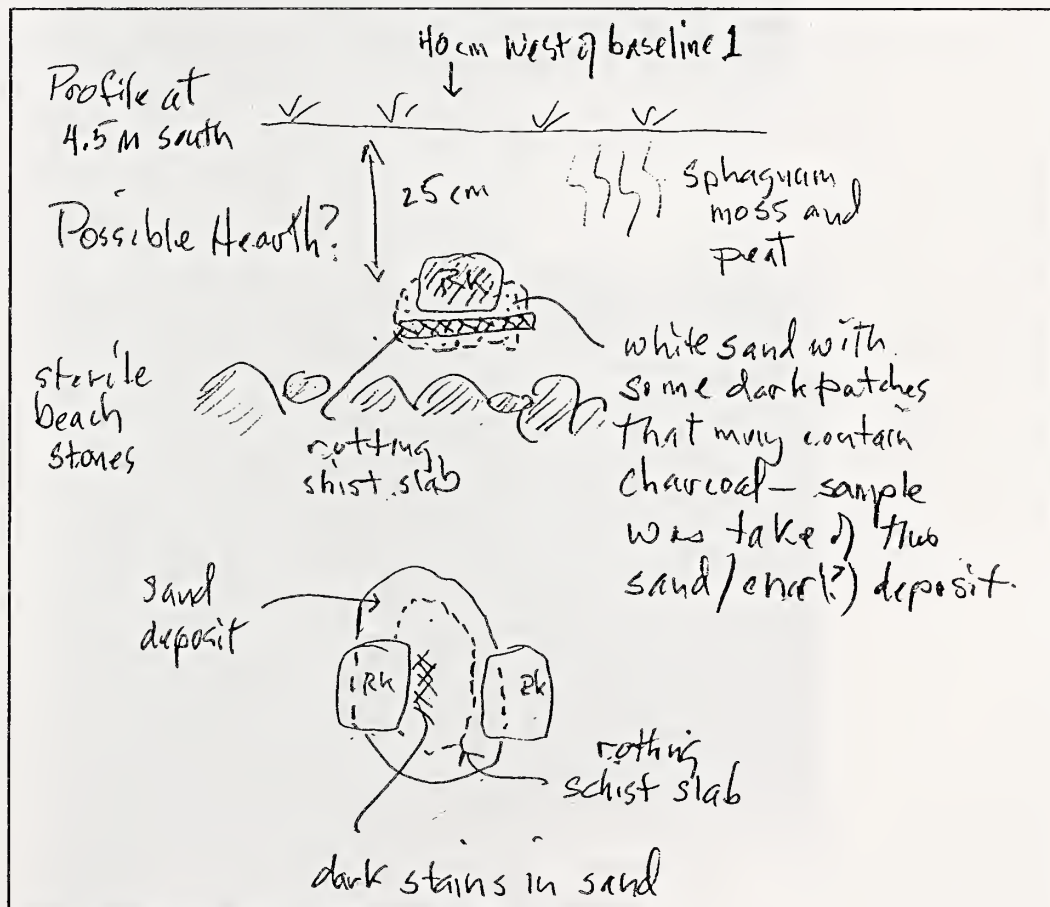 40 cm West of baseline 1
Profile at
4.5 m south
25 cm
Sphagnum
moss and
peat
Possible Hearth?
RK
sterile
beach
stones
rotting
shist slab
white sand with
some dark patches
that may contain
charcoal – sample
was take of this
sand/char(?) deposit.
sand
deposit
RK
RK
rotting
schist slab
dark stains in sand